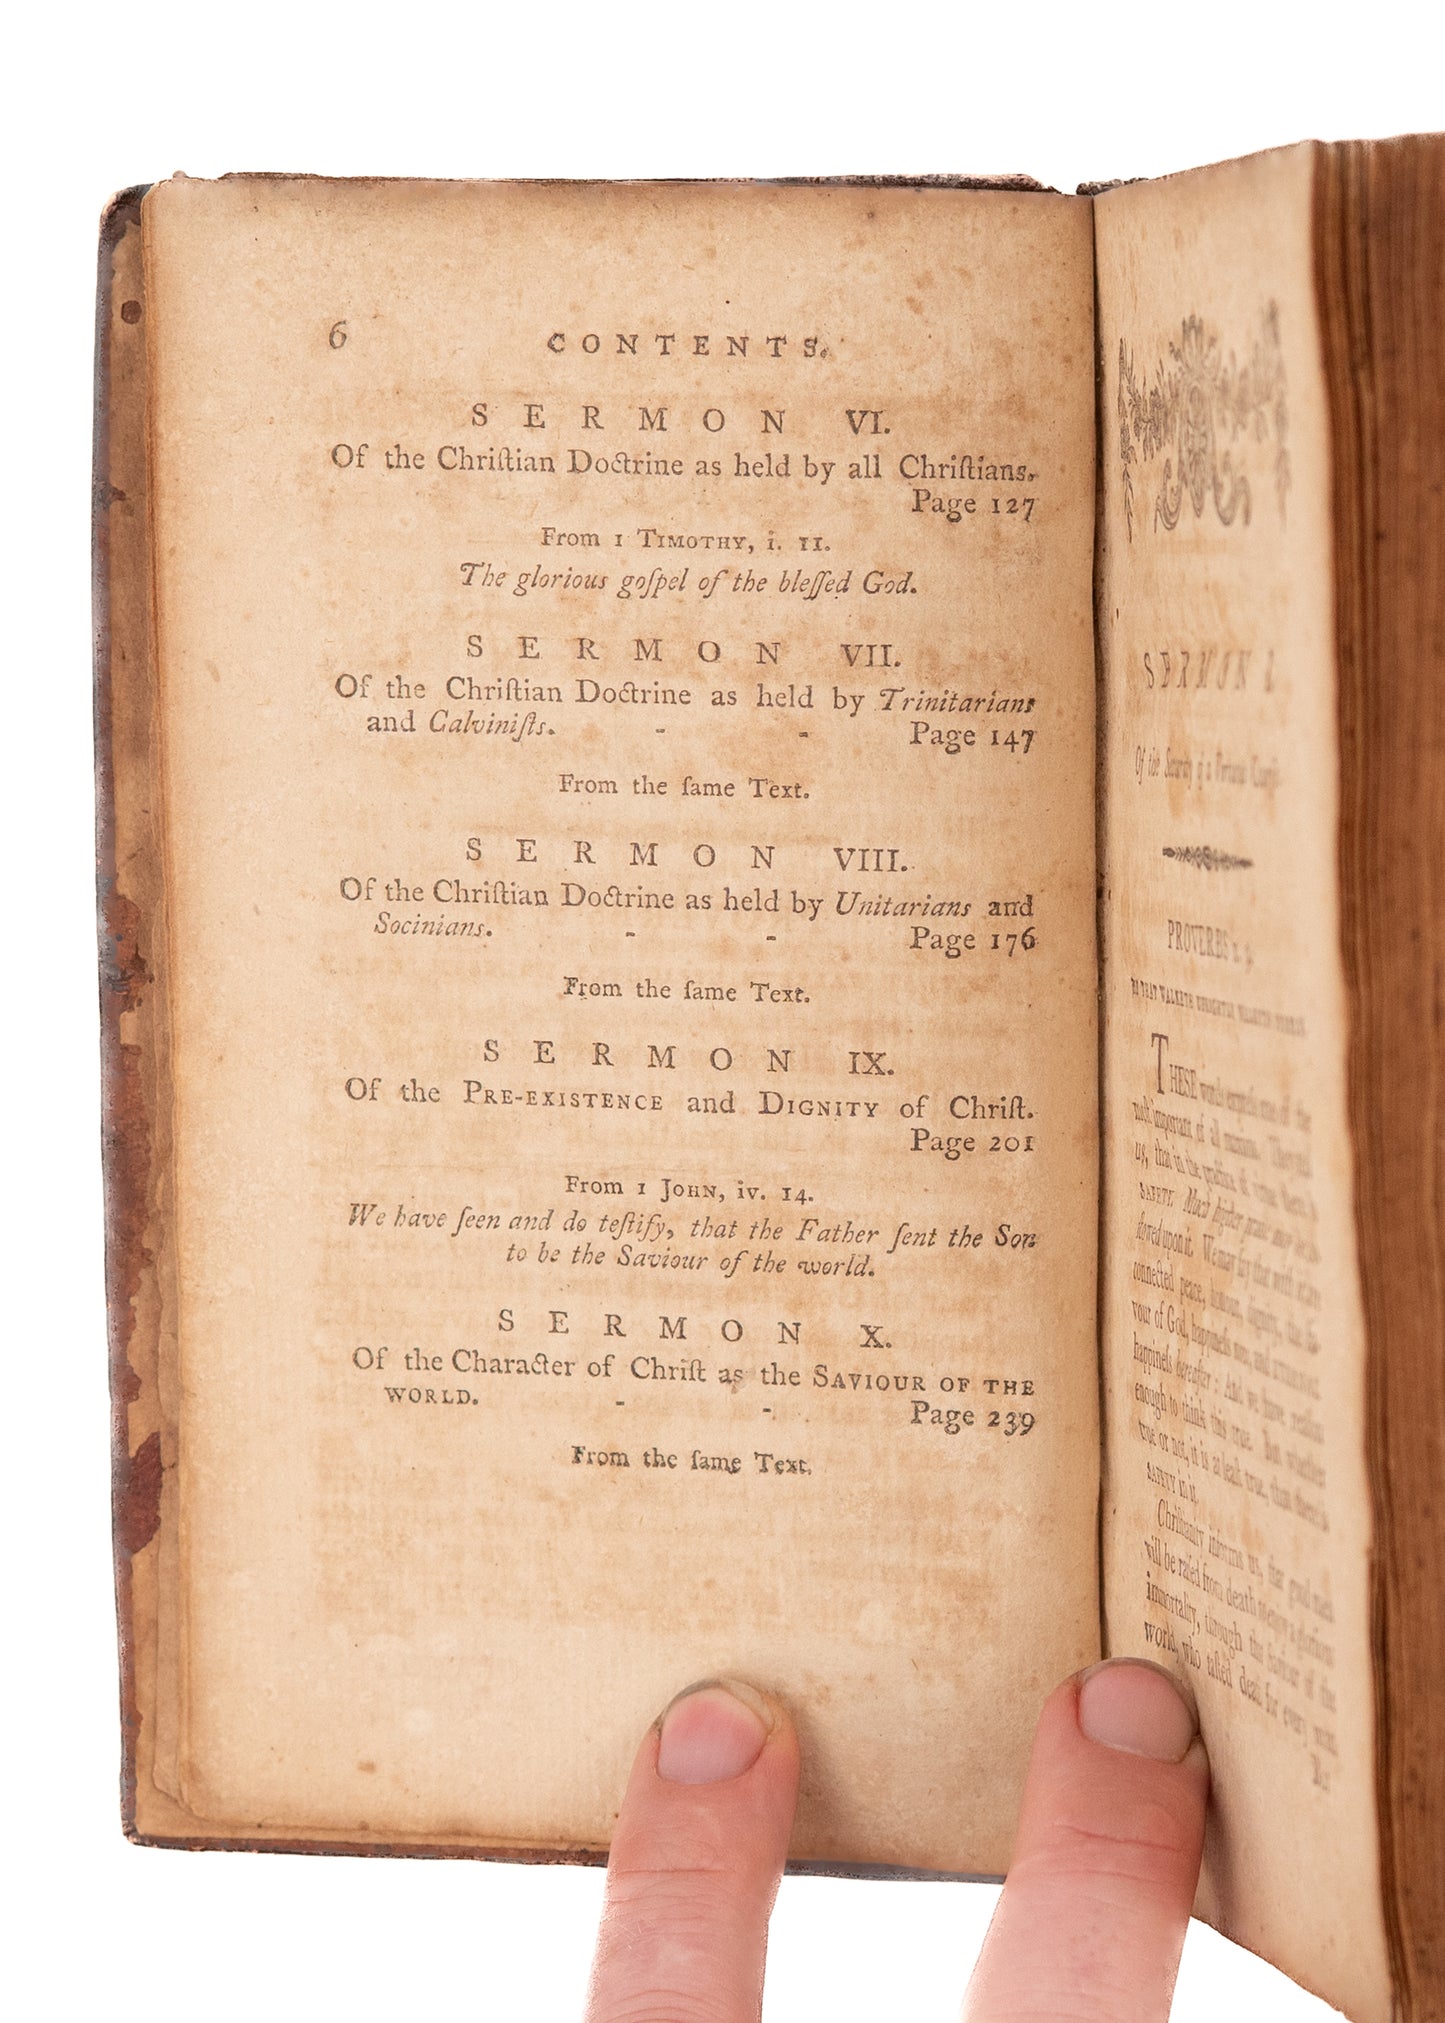 6
CONTENTS.
SERMON VI.
Of the Chriſtian Doctrine as held by all Chriſtians.
Page 127
From 1 TIMOTHY, i. 11.
The glorious goſpel of the bleſſed God.
SERMON VII.
Of the Chriſtian Doctrine as held by Trinitarians
and Calviniſts. - - Page 147
From the ſame Text.
SERMON VIII.
Of the Chriſtian Doctrine as held by Unitarians and
Socinians. - - Page 176
From the ſame Text.
SERMON IX.
Of the PRE-EXISTENCE and DIGNITY of Chriſt.
Page 201
From 1 JOHN, iv. 14.
We have ſeen and do teſtify, that the Father ſent the Son
to be the Saviour of the world.
SERMON X.
Of the Character of Chriſt as the SAVIOUR OF THE
WORLD. - - Page 239
From the ſame Text.
SERMON I.
Of the Security of a Virtuous
PROVERBS x. 9.
HE THAT WALKETH UPRIGHTLY WALKETH
THESE words expreſs one of the
moſt important of all
us, that in the
SAFETY. Much higher praiſe may be
ſtowed upon it. We may ſay that with it are
connected peace, honour, dignity, the fa-
vour of God, happineſs now, and
happineſs hereafter: And we have reaſon
enough to think this true. But whether
true or not, it is at leaſt true, that there is
SAFETY in it.
Chriſtianity informs us, that good men
will be raiſed from death to enjoy a glorious
immortality, through the Saviour of the
world, who taſted death for every man